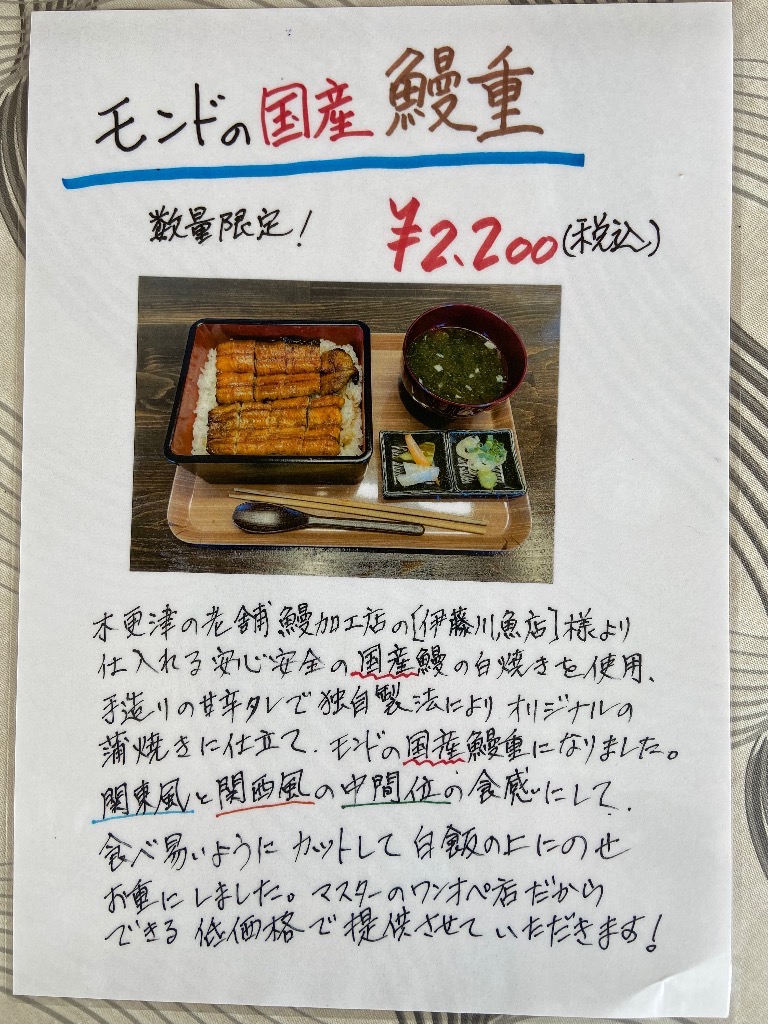 モンドの国産鰻重
数量限定!
¥2,200(税込)
木更津の老舗鰻加工店の[伊藤川魚店]様より
仕入れる安心安全の国産鰻の白焼きを使用、
手造りの甘辛タレで独自製法によりオリジナルの
蒲焼きに仕立て、モンドの国産鰻重になりました。
関東風と関西風の中間位の食感にして、
食べ易いようにカットして白飯の上にのせ
お重にしました。マスターのワンオペ店だから
できる低価格で提供させていただきます!